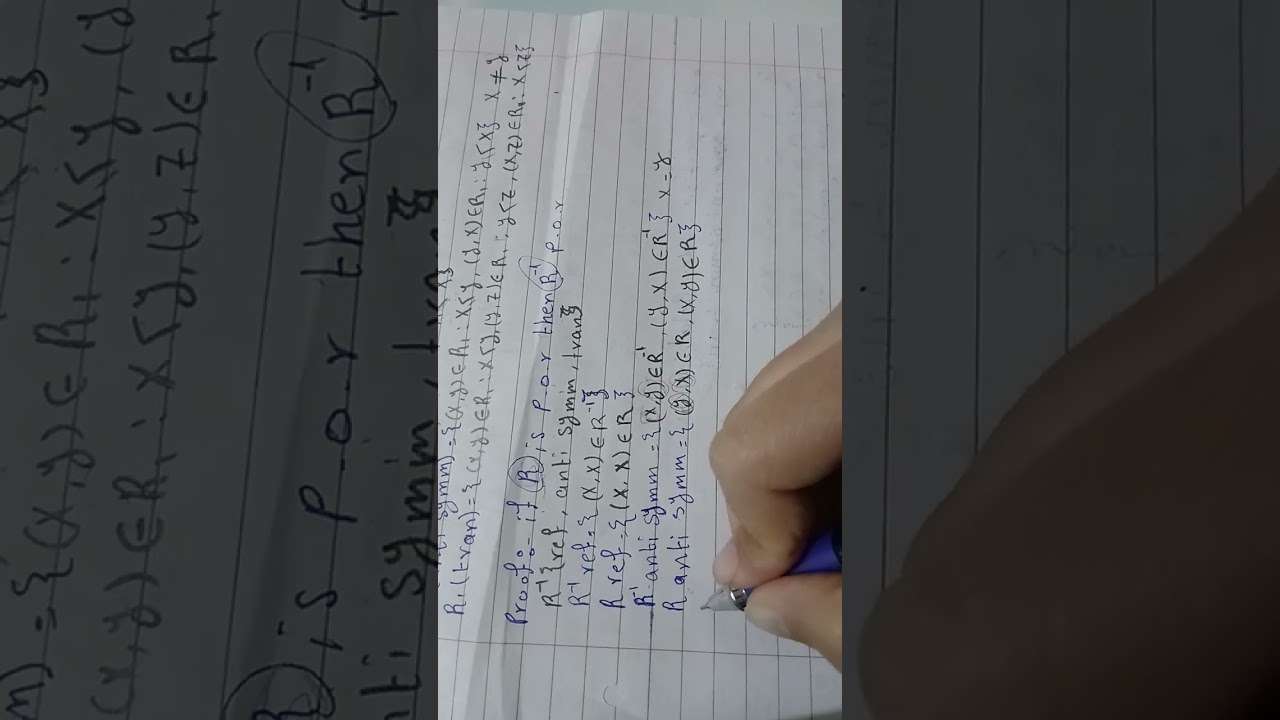 R₁(tran)={(x,y)∈R₁: x≤y,(y,z)∈R₁: y≤z,(x,z)∈R₁: x≤z}
Proof:- if R is P.O.r then R⁻¹ P.O.r
R⁻¹{ref, anti symm, tran}
R⁻¹ ref={(x,x)∈R⁻¹}
R ref={(x,x)∈R}
R⁻¹ anti symm={(x,y)∈R⁻¹,(y,x)∈R⁻¹} x=y
R anti symm={(y,x)∈R,(x,y)∈R}